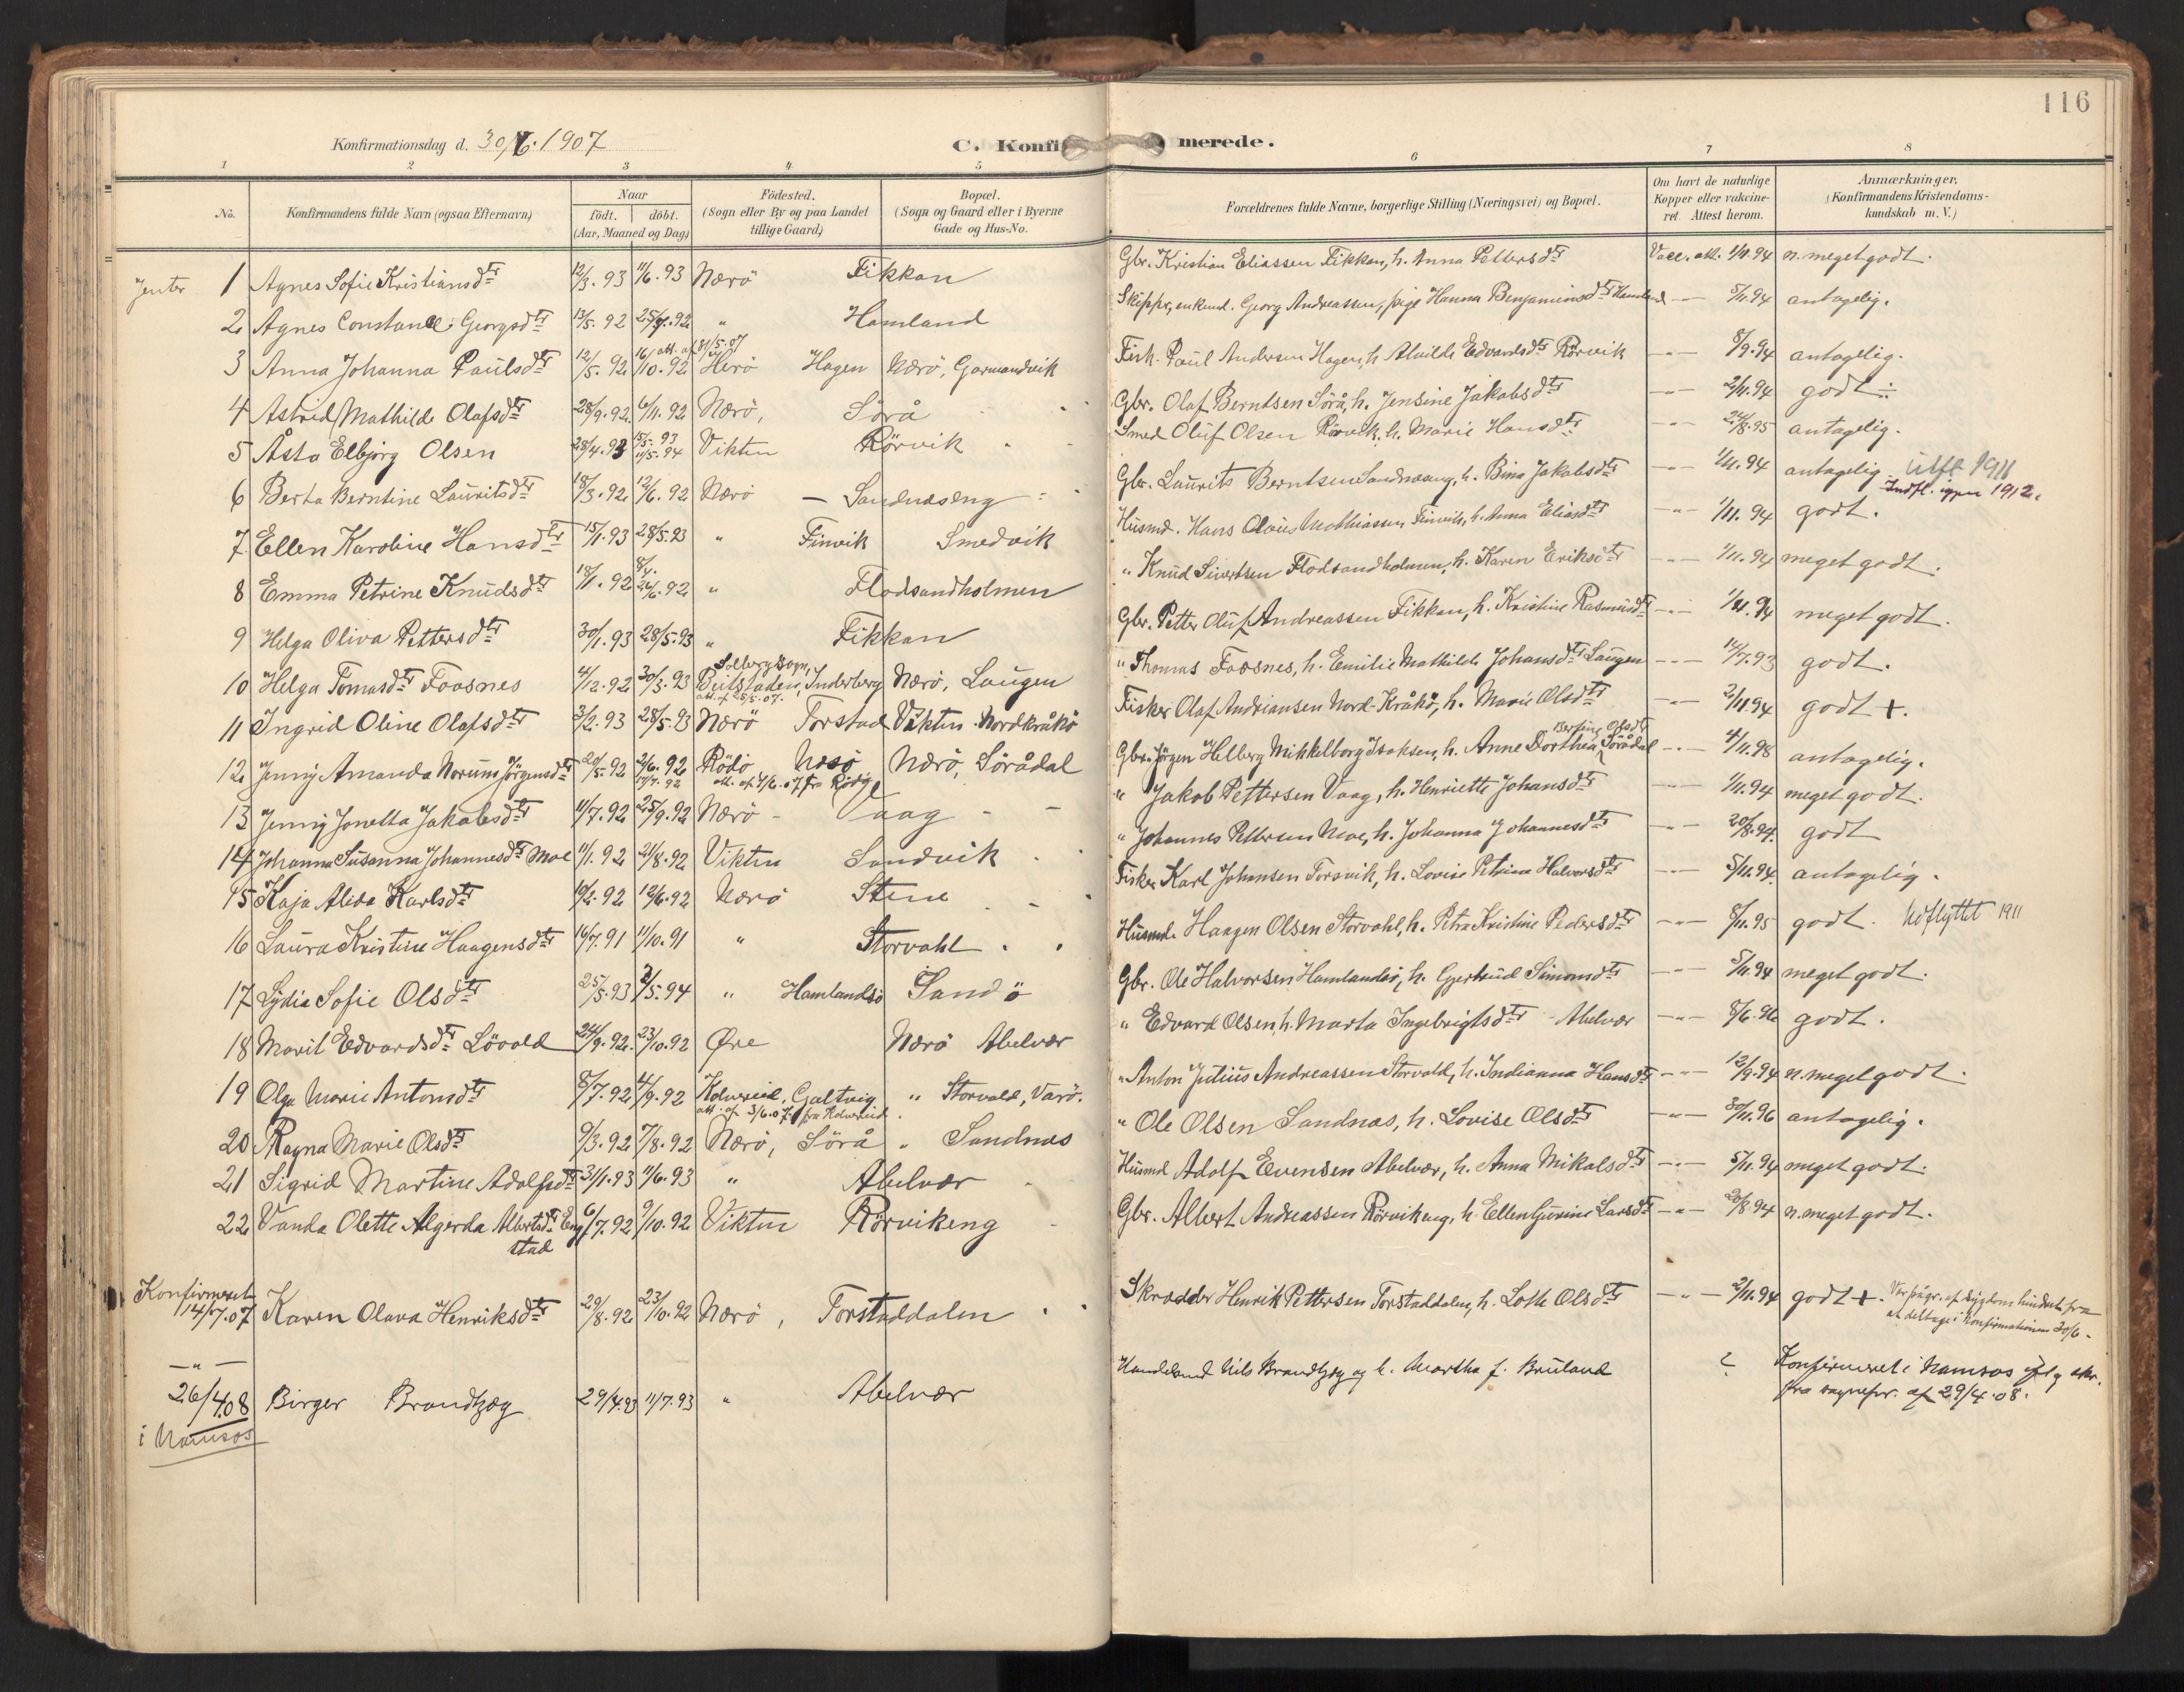 116
Konfirmationsdag d. 30/6. 1907
C. Konfi merede.
1 2 3 4 5 6 7 8
No.
Konfirmandens fulde Navn (ogsaa Efternavn)
Naar
födt. döbt.
(Aar, Maaned og Dag)
Födested.
(Sogn eller By og paa Landet
tillige Gaard)
Bopæl.
(Sogn og Gaard eller i Byerne
Gade og Hus-No.
Forældrenes fulde Navne, borgerlige Stilling (Næringsvei) og Bopæl.
Om havt de naturlige
Kopper eller vakcine-
ret. Attest herom.
Anmærkninger.
(Konfirmandens Kristendoms-
kundskab m. V.)
Jenter 1 Agnes Sofie Kristiansdtr 12/3. 93 11/6. 93 Nærö Fikkan Gbr. Kristian Eliassen Fikkan, h. Anna Pettersdtr Vacc. att. 1/11.94 n. meget godt.
2 Agnes Constance Georgsdtr 13/5. 92 25/9. 92 " Hamland Skipper, enkemd. Georg Andreassen, pige Hanna Benjaminsdtr Hamland -"- 5/11.94 antagelig.
3 Anna Johanna Paulsdtr 12/5. 92 16/10. 92 att. af 31/5.07 Herö Hagen Nærö, Garmandvik Fisk. Paul Andersen Hagen, h. Alvilde Edvardsdtr Rörvik -"- 8/9.94 antagelig.
4 Astrid Mathilde Olafsdtr 28/9. 92 6/11. 92 Nærö, Sörå Gbr. Olaf Berntsen Sörå, h. Jensine Jakobsdtr -"- 2/11.94 godt ÷
5 Åsta Elbjörg Olsen 28/4. 93 15/5. 93 11/5. 94 Vikten Rörvik Smed Oluf Olsen Rörvik, h. Marie Hansdtr -"- 24/8.95 antagelig.
6 Berta Berntine Lauritsdtr 18/3. 92 12/6. 92 Nærö - Sandnæseng Gbr. Laurits Berntsen Sandnæseng, h. Bina Jakobsdtr -"- 1/11.94 antagelig Utfl 1911
Indfl. igjen 1912.
7 Ellen Karoline Hansdtr 15/1. 93 28/5. 93 " Finvik Smedvik Husmd. Hans Olaus Mathiassen Finvik, h. Anna Eliasdtr -"- 1/11. 94 godt.
8 Emma Petrine Knudsdtr 18/1. 92 8/4. 24/6. 92 " Flodsandholmen " Knud Sivertsen Flodsandholmen, h. Karen Eriksdtr -"- 1/11.94 meget godt.
9 Helga Oliva Pettersdtr 30/1. 93 28/5. 93 " Fikkan Gbr. Petter Oluf Andreassen Fikkan, h. Kristine Rasmusdtr -"- 1/11.94 meget godt.
10 Helga Tomasdtr Foosnes 4/12. 92 30/3. 93 Solberg sogn, Beitstaden, Inderberg att. af 25/5.07. Nærö, Laugen " Thomas Foosnes, h. Emilie Mathilde Johansdtr Laugen -"- 14/7.93 godt.
11 Ingrid Oline Olafsdtr 3/2. 93 28/5. 93 Nærö Torstad Vikten Nordkråkö Fisker Olaf Andriansen Nord-Kråkö, h. Marie Olsdtr -"- 2/11.94 godt +.
12 Jenny Amanda Norum Jörgensdtr 20/5. 92 26/6. 92 17/7. 92 Rödö Næsö att. af 4/6.07 fra Rödö Nærö, Sörådal Gbr. Jörgen Helberg Mikkelborg Isaksen, h. Anne Dorthea Berfine Olsdtr Sörådal -"- 4/11.98 antagelig.
13 Jenny Jonetta Jakobsdtr 11/7. 92 25/9. 92 Nærö - Vaag - " Jakob Pettersen Vaag, h. Henriette Johansdtr -"- 1/11.94 meget godt.
14 Johanna Susanna Johannesdtr Moe 11/1. 92 21/8. 92 Vikten Sandvik " Johannes Pettersen Moe, h. Johanna Johannesdtr -"- 20/8.94. godt
15 Kaja Alida Karlsdtr 19/2. 92 12/6. 92 Nærö Stene Fisker Karl Johansen Torsvik, h. Lovise Petrine Halvorsdtr -"- 5/11.94. antagelig.
16 Laura Kristine Haagensdtr 16/7. 91 11/10. 91 " Storvahl Husmd. Haagen Olsen Storvahl, h. Petra Kristine Pedersdtr -"- 8/11.95 godt. Udflyttet 1911
17 Lydia Sofie Olsdtr 25/5. 93 2/5. 94 " Hamlandsö Sandö Gbr. Ole Halvorsen Hamlandsö, h. Gjertrud Simonsdtr -"- 5/11.94 meget godt.
18 Marit Edvardsdtr Lövold 24/9. 92. 23/10. 92 Öre Nærö Abelvær " Edvard Olsen, h. Marta Ingebrigtsdtr Abelvær -"- 8/6.96 godt.
19 Olga Marie Antonsdtr 8/7. 92 4/9. 92 Kolvereid, Galtvig att. af 3/6.07 fra Kolvereid. " Storvold, Varö. " Anton Julius Andreassen Storvold, h. Indianna Hansdtr -"- 12/9.94 n. meget godt.
20 Ragna Marie Olsdtr 9/3. 92 7/8. 92 Nærö, Sörå " Sandnæs " Ole Olsen Sandnæs, h. Lovise Olsdtr -"- 30/11.96 antagelig.
21 Sigrid Martine Adolfsdtr 31/1. 93 11/6. 93 " Abelvær Husmd Adolf Evensen Abelvær, h. Anna Mikalsdtr -"- 5/11.94 meget godt.
22 Vanda Olette Algerda Albertsdtr Eng 6/7. 92 9/10. 92 Vikten Rörvikeng Gbr. Albert Andreassen Rörvikeng, h. Ellen Gurine Larsdtr -"- 20/8.94 n. meget godt.
stad
Konfirmeret
14/7.07 Karen Olava Henriksdtr 29/8. 92 23/10. 92 Nærö, Torstaddalen Skrædder Henrik Pettersen Torstaddalen, h. Lotte Olsdtr -"- 2/11.94 godt +. Var pågr. af sygdom hindret fra
at deltage i Konfirmationen 30/6.
-"-
26/4.08 Birger Brandtzæg 29/4. 93 11/7. 93 " Abelvær Handelsmd Nils Brandtzæg og h. Martha f. Bruland ? Konfirmeret i Namsos iflg skr.
fra sognepr. af 29/4.08.
i Namsos